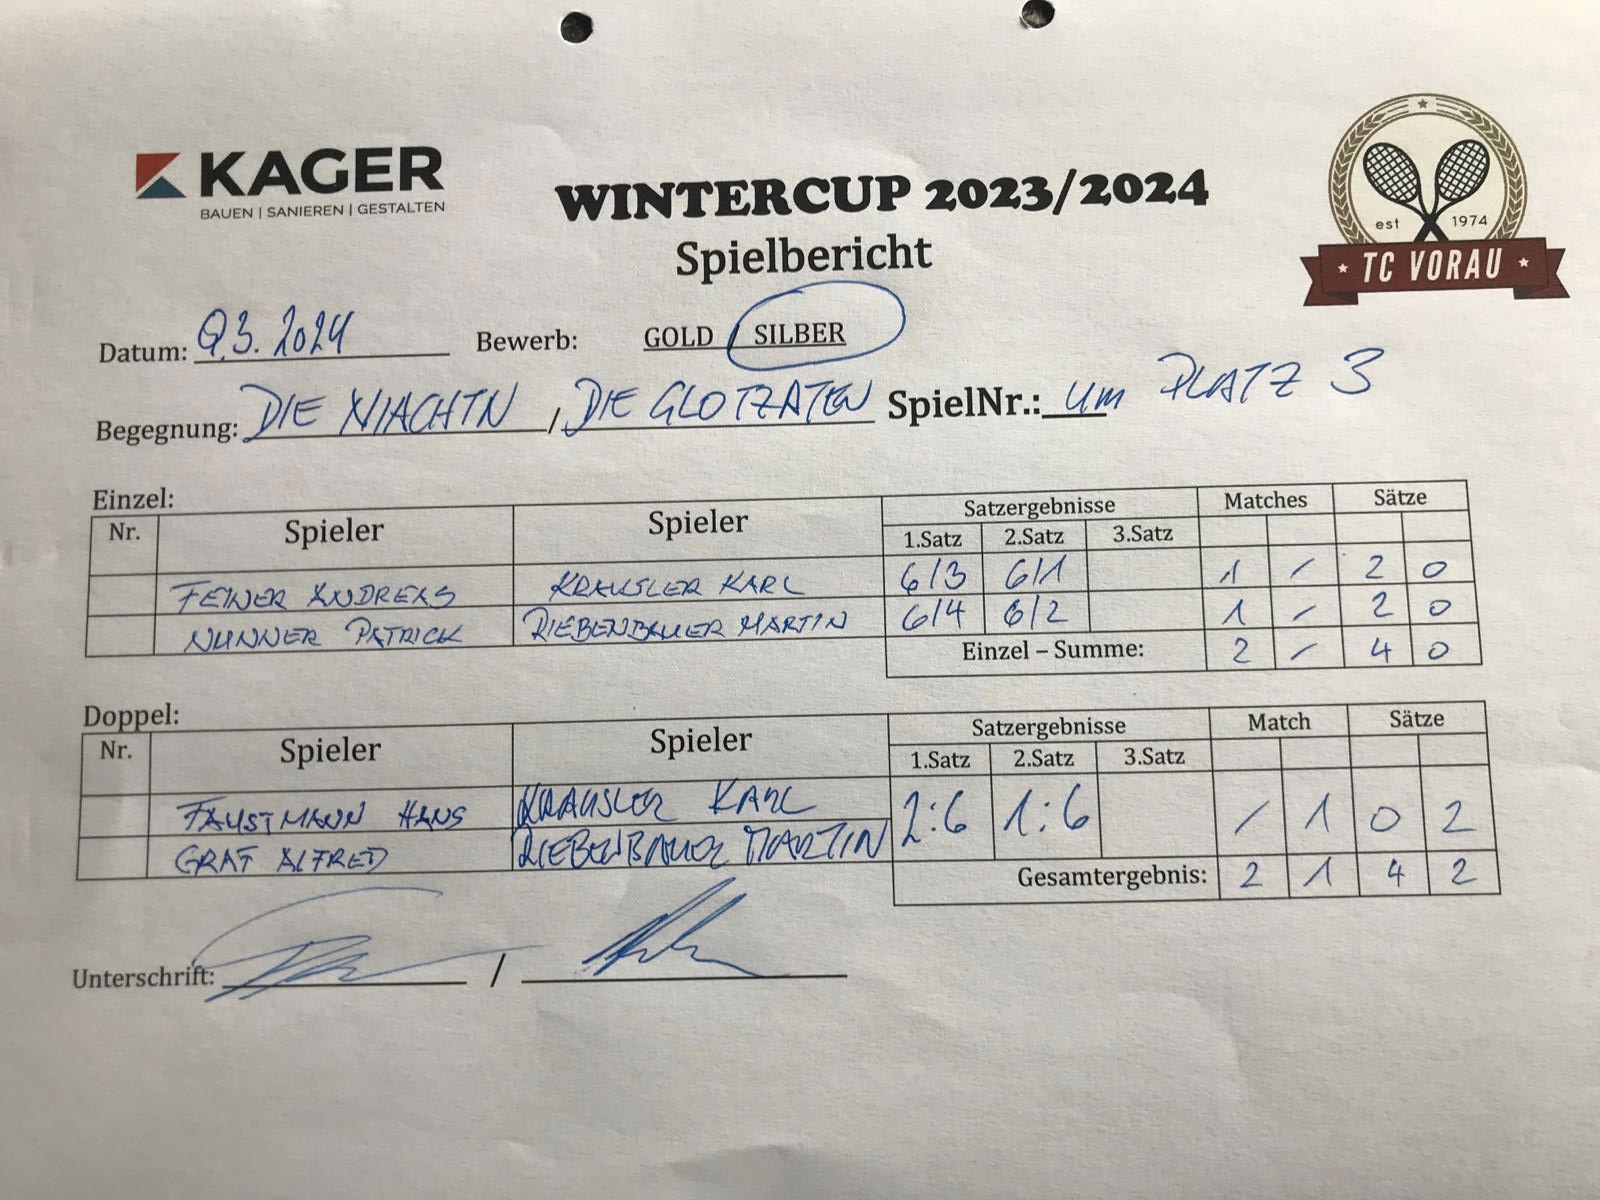 KAGER
BAUEN | SANIEREN | GESTALTEN
WINTERCUP 2023/2024
Spielbericht
est 1974
TC VORAU
Datum: 9.3.2024 Bewerb: GOLD / SILBER
Begegnung: DIE NIACHTN / DIE GLOTZATEN SpielNr.: um PLATZ 3
Einzel:
Nr. Spieler Spieler Satzergebnisse Matches Sätze
1.Satz 2.Satz 3.Satz
FEINER ANDREAS KRAUSLER KARL 6/3 6/1 1 / 2 0
NUNNER PATRICK RIEBENBAUER MARTIN 6/4 6/2 1 / 2 0
Einzel – Summe: 2 / 4 0
Doppel:
Nr. Spieler Spieler Satzergebnisse Match Sätze
1.Satz 2.Satz 3.Satz
FAUSTMANN HANS KRAUSLER KARL 2:6 1:6 / 1 0 2
GRAF ALFRED RIEBENBAUER MARTIN
Gesamtergebnis: 2 1 4 2
Unterschrift: /